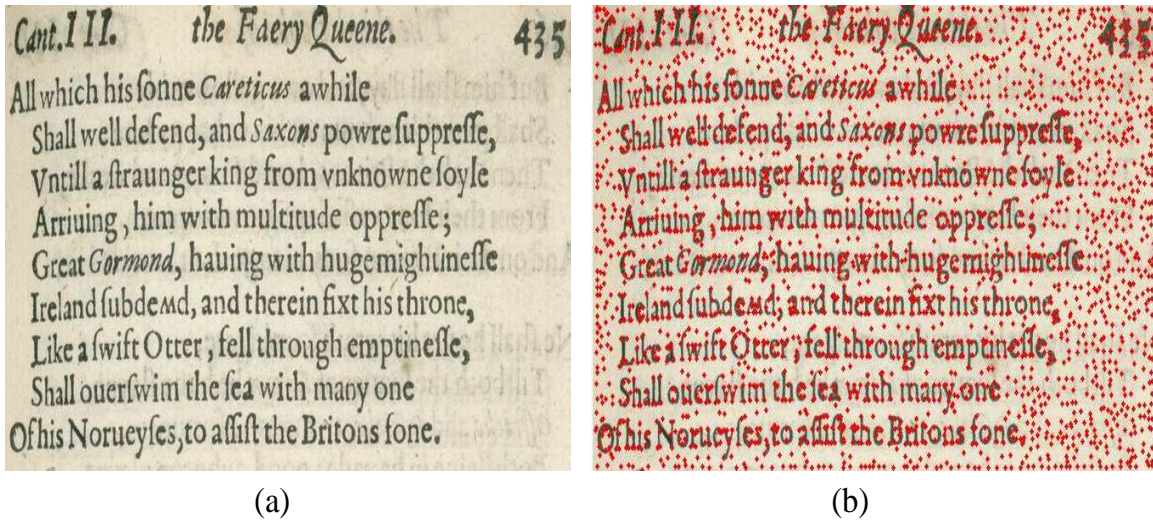 Cant.III. the Faery Queene. 435
All which his ſonne Careticus awhile
Shall well defend, and Saxons powre ſuppreſſe,
Vntill a ſtraunger king from vnknowne ſoyle
Arriuing, him with multitude oppreſſe;
Great Gormond, hauing with huge mightineſſe
Ireland ſubdeʍd, and therein fixt his throne,
Like a ſwift Otter, fell through emptineſſe,
Shall ouerſwim the ſea with many one
Of his Norueyſes, to aſſiſt the Britons fone.
(a)
Cant.III. the Faery Queene. 435
All which his ſonne Careticus awhile
Shall well defend, and Saxons powre ſuppreſſe,
Vntill a ſtraunger king from vnknowne ſoyle
Arriuing, him with multitude oppreſſe;
Great Gormond, hauing with huge mightineſſe
Ireland ſubdeʍd, and therein fixt his throne,
Like a ſwift Otter, fell through emptineſſe,
Shall ouerſwim the ſea with many one
Of his Norueyſes, to aſſiſt the Britons fone.
(b)